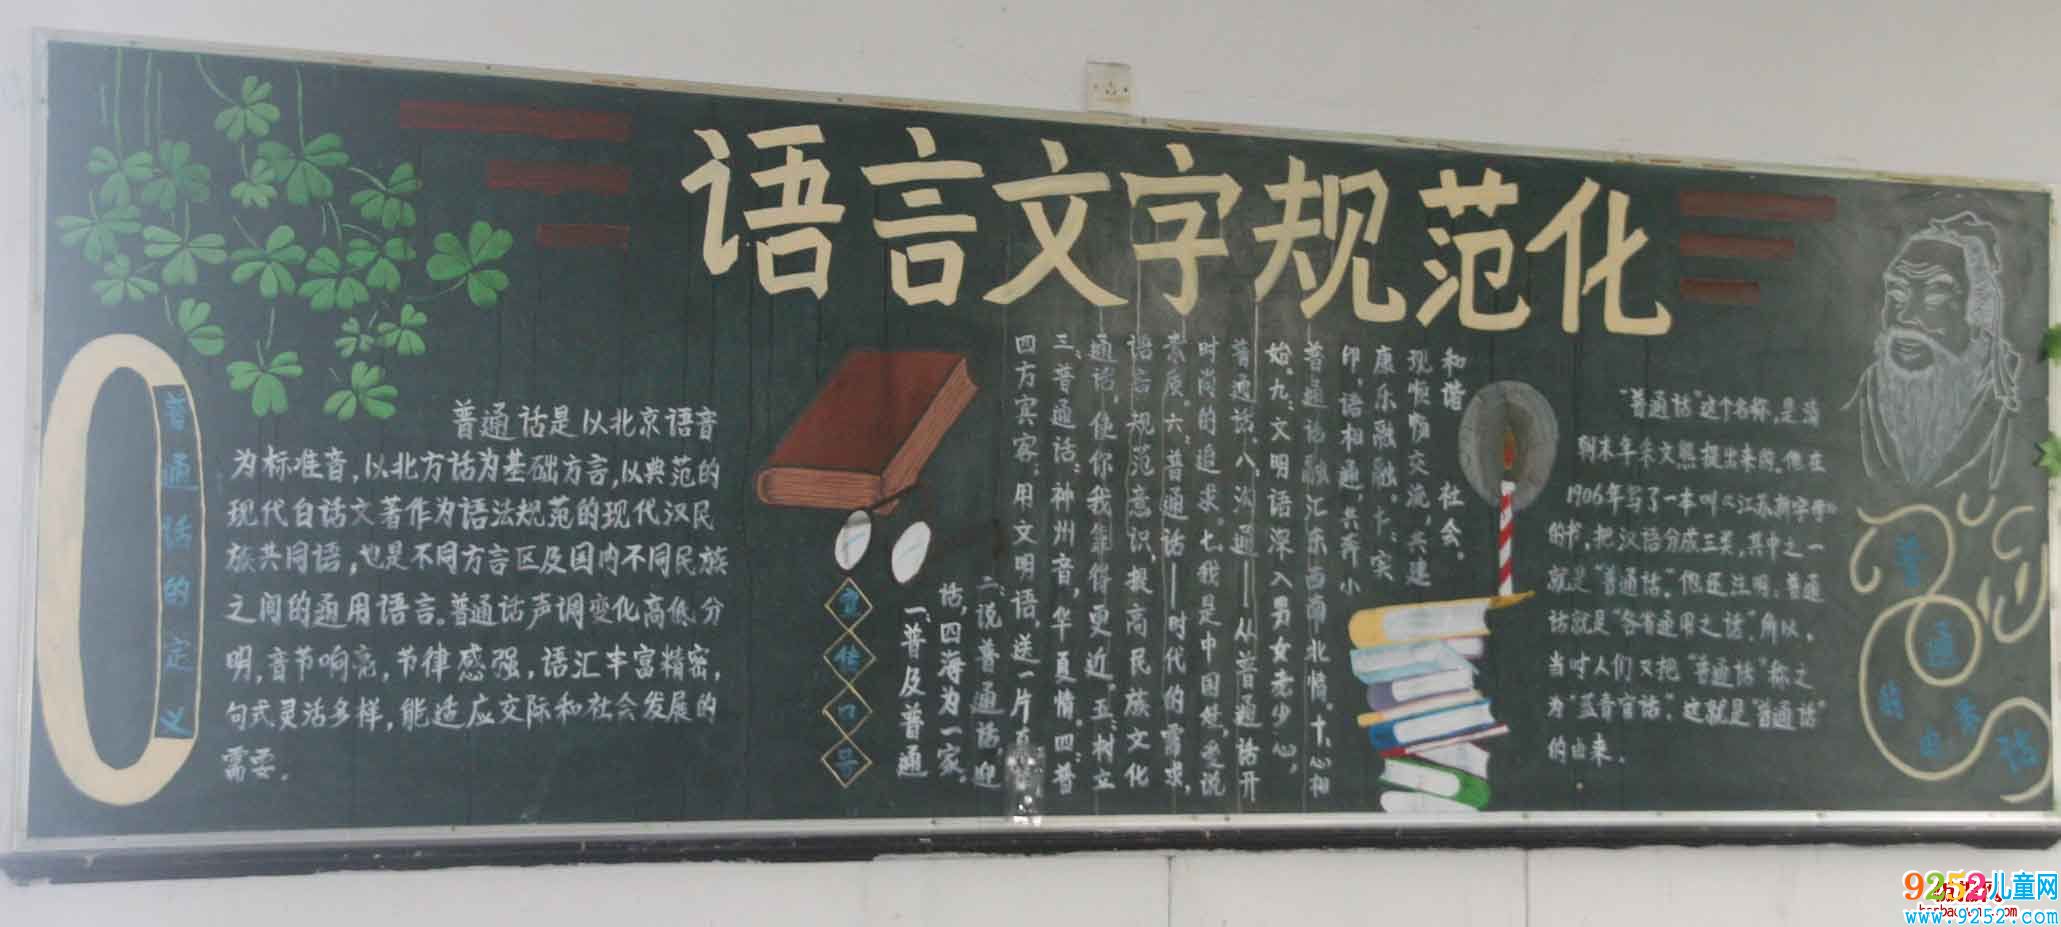 语言文字规范化
普通话的定义
普通话是以北京语音
为标准音，以北方话为基础方言，以典范的
现代白话文著作为语法规范的现代汉民
族共同语，也是不同方言区及国内不同民族
之间的通用语言。普通话声调变化高低分
明，音节响亮，节律感强，语汇丰富精密，
句式灵活多样，能适应交际和社会发展的
需要。
宣传口号
一、普及普通
话，四海为一家。
二：说普通话，迎
四方宾客；用文明语，送一片真
三：普通话：神州音，华夏情。四：普
通话，使你我靠得更近。五：树立
语言规范意识，提高民族文化
素质。六：普通话——时代的需求，
时尚的追求。七：我是中国娃，爱说
普通话。八：沟通——从普通话开
始。九：文明语深入男女老少心，
普通话融汇东西南北情。十、心相
印，语相通，共奔小
康乐融融。十：实
现顺畅交流，共建
和谐 社会。
“普通话”这个名称，是清
朝末年朱文熊提出来的。他在
1906年写了一本叫《江苏新字母》
的书，把汉语分成三类，其中之一
就是“普通话”。他还注明：普通
话就是“各省通用之话”。所以，
当时人们又把“普通话”称之
为“蓝青官话”。这就是“普通话”
的由来。
普
通
话
的
由
来
9252儿童网
www.9252.com